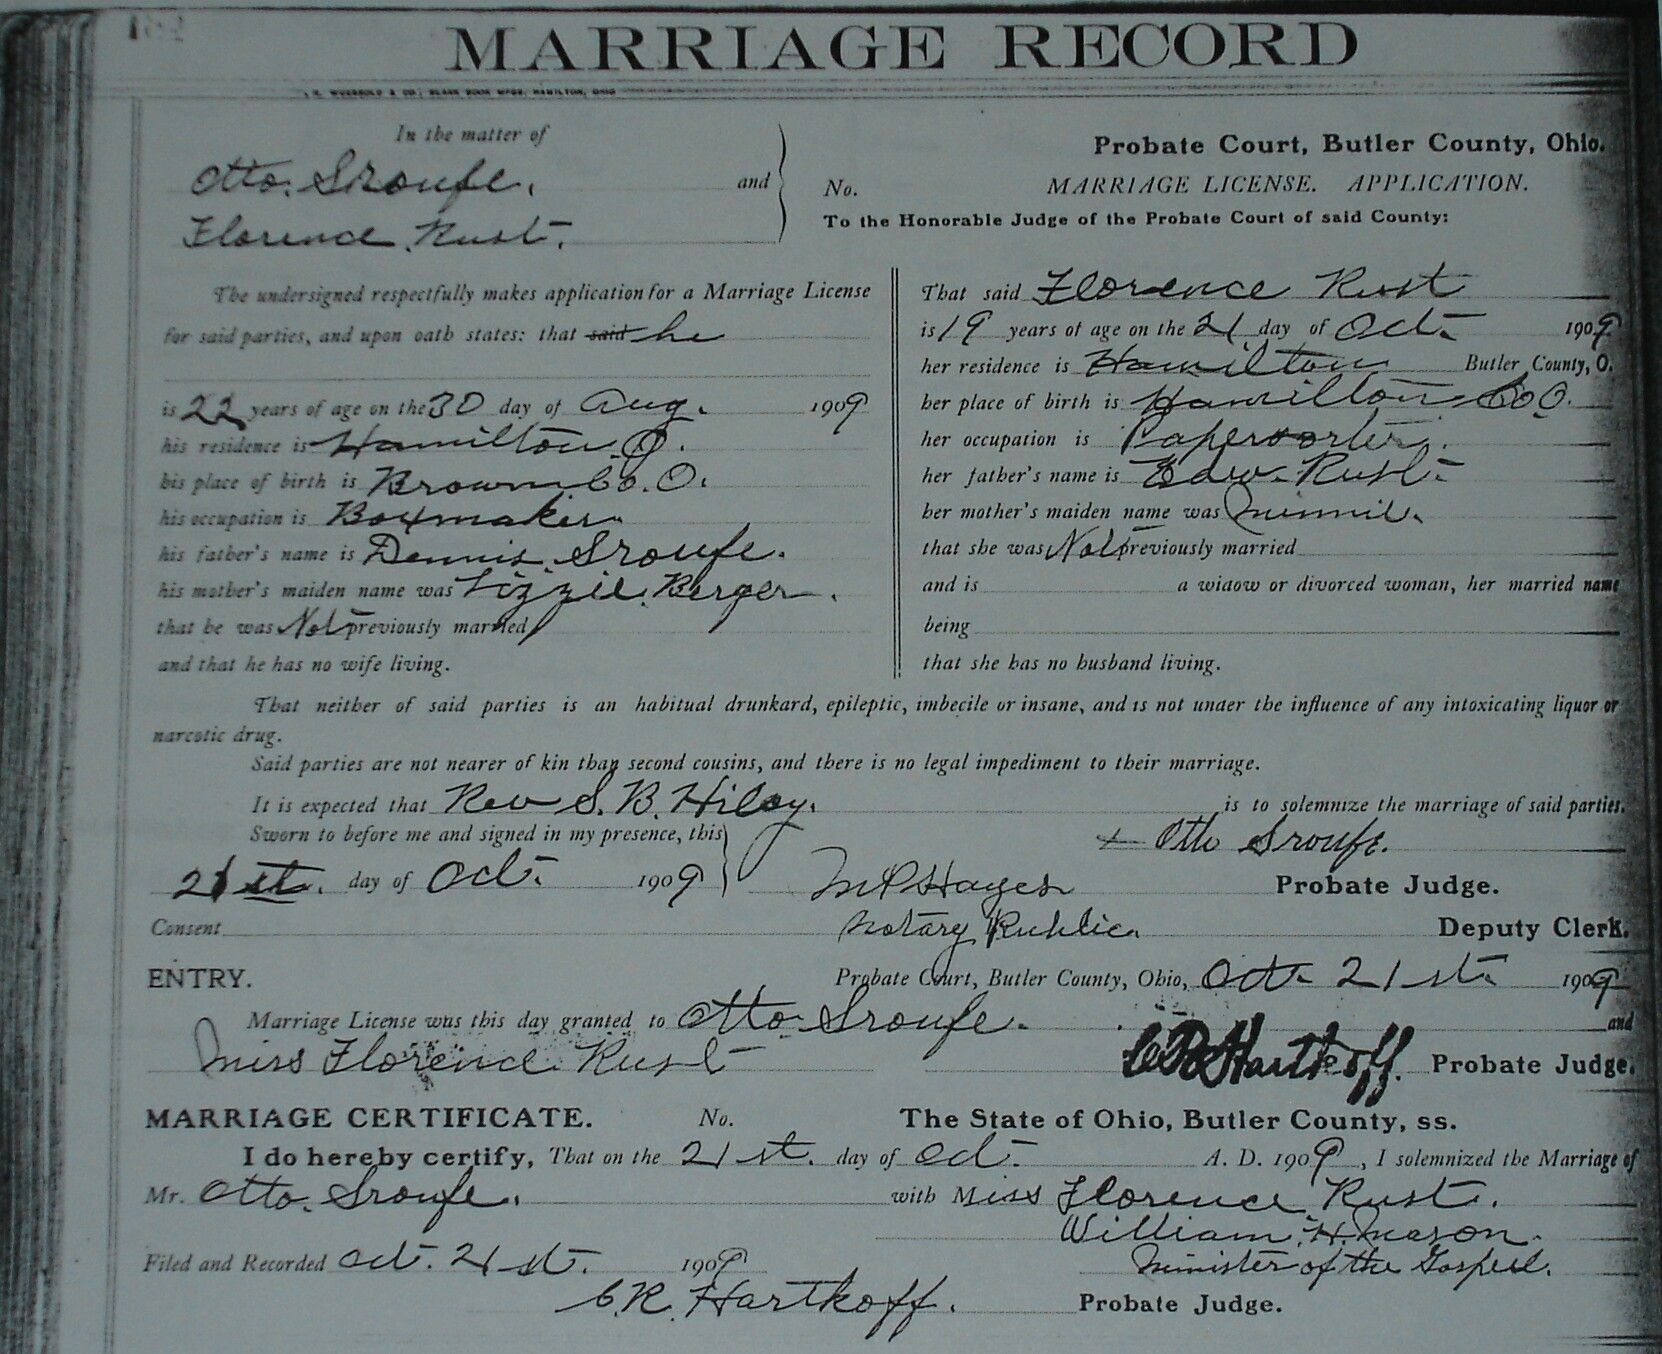 MARRIAGE RECORD
In the matter of
Otto Sroufe. and
Florence Rust.
Probate Court, Butler County, Ohio.
No. MARRIAGE LICENSE. APPLICATION.
To the Honorable Judge of the Probate Court of said County:
The undersigned respectfully makes application for a Marriage License
for said parties, and upon oath states: that said he
is 22 years of age on the 30 day of Aug. 1909
his residence is Hamilton O.
his place of birth is Brown Co. O.
his occupation is Boxmaker
his father's name is Dennis Sroufe.
his mother's maiden name was Lizzie Berger.
that he was Not previously married
and that he has no wife living.
That said Florence Rust
is 19 years of age on the 21 day of Oct. 1909
her residence is Hamilton Butler County, O.
her place of birth is Hamilton Co O.
her occupation is Papersorter.
her father's name is Edw. Rust.
her mother's maiden name was Minnie.
that she was Not previously married
and is a widow or divorced woman, her married name
being
that she has no husband living.
That neither of said parties is an habitual drunkard, epileptic, imbecile or insane, and is not under the influence of any intoxicating liquor or
narcotic drug.
Said parties are not nearer of kin than second cousins, and there is no legal impediment to their marriage.
It is expected that Rev S. B. Hiley. is to solemnize the marriage of said parties.
Sworn to before me and signed in my presence, this
Otto Sroufe.
21st. day of Oct. 1909 M P Hayes Probate Judge.
Consent Notary Public. Deputy Clerk.
ENTRY. Probate Court, Butler County, Ohio, Oct. 21st. 1909
Marriage License was this day granted to Otto Sroufe. and
Miss Florence Rust Hartkoff. Probate Judge.
MARRIAGE CERTIFICATE. No. The State of Ohio, Butler County, ss.
I do hereby certify, That on the 21st. day of Oct. A. D. 1909, I solemnized the Marriage of
Mr. Otto Sroufe. with Miss Florence Rust.
William H. Mason.
Filed and Recorded Oct. 21st. 1909 Minister of the Gospel.
C. R. Hartkoff. Probate Judge.